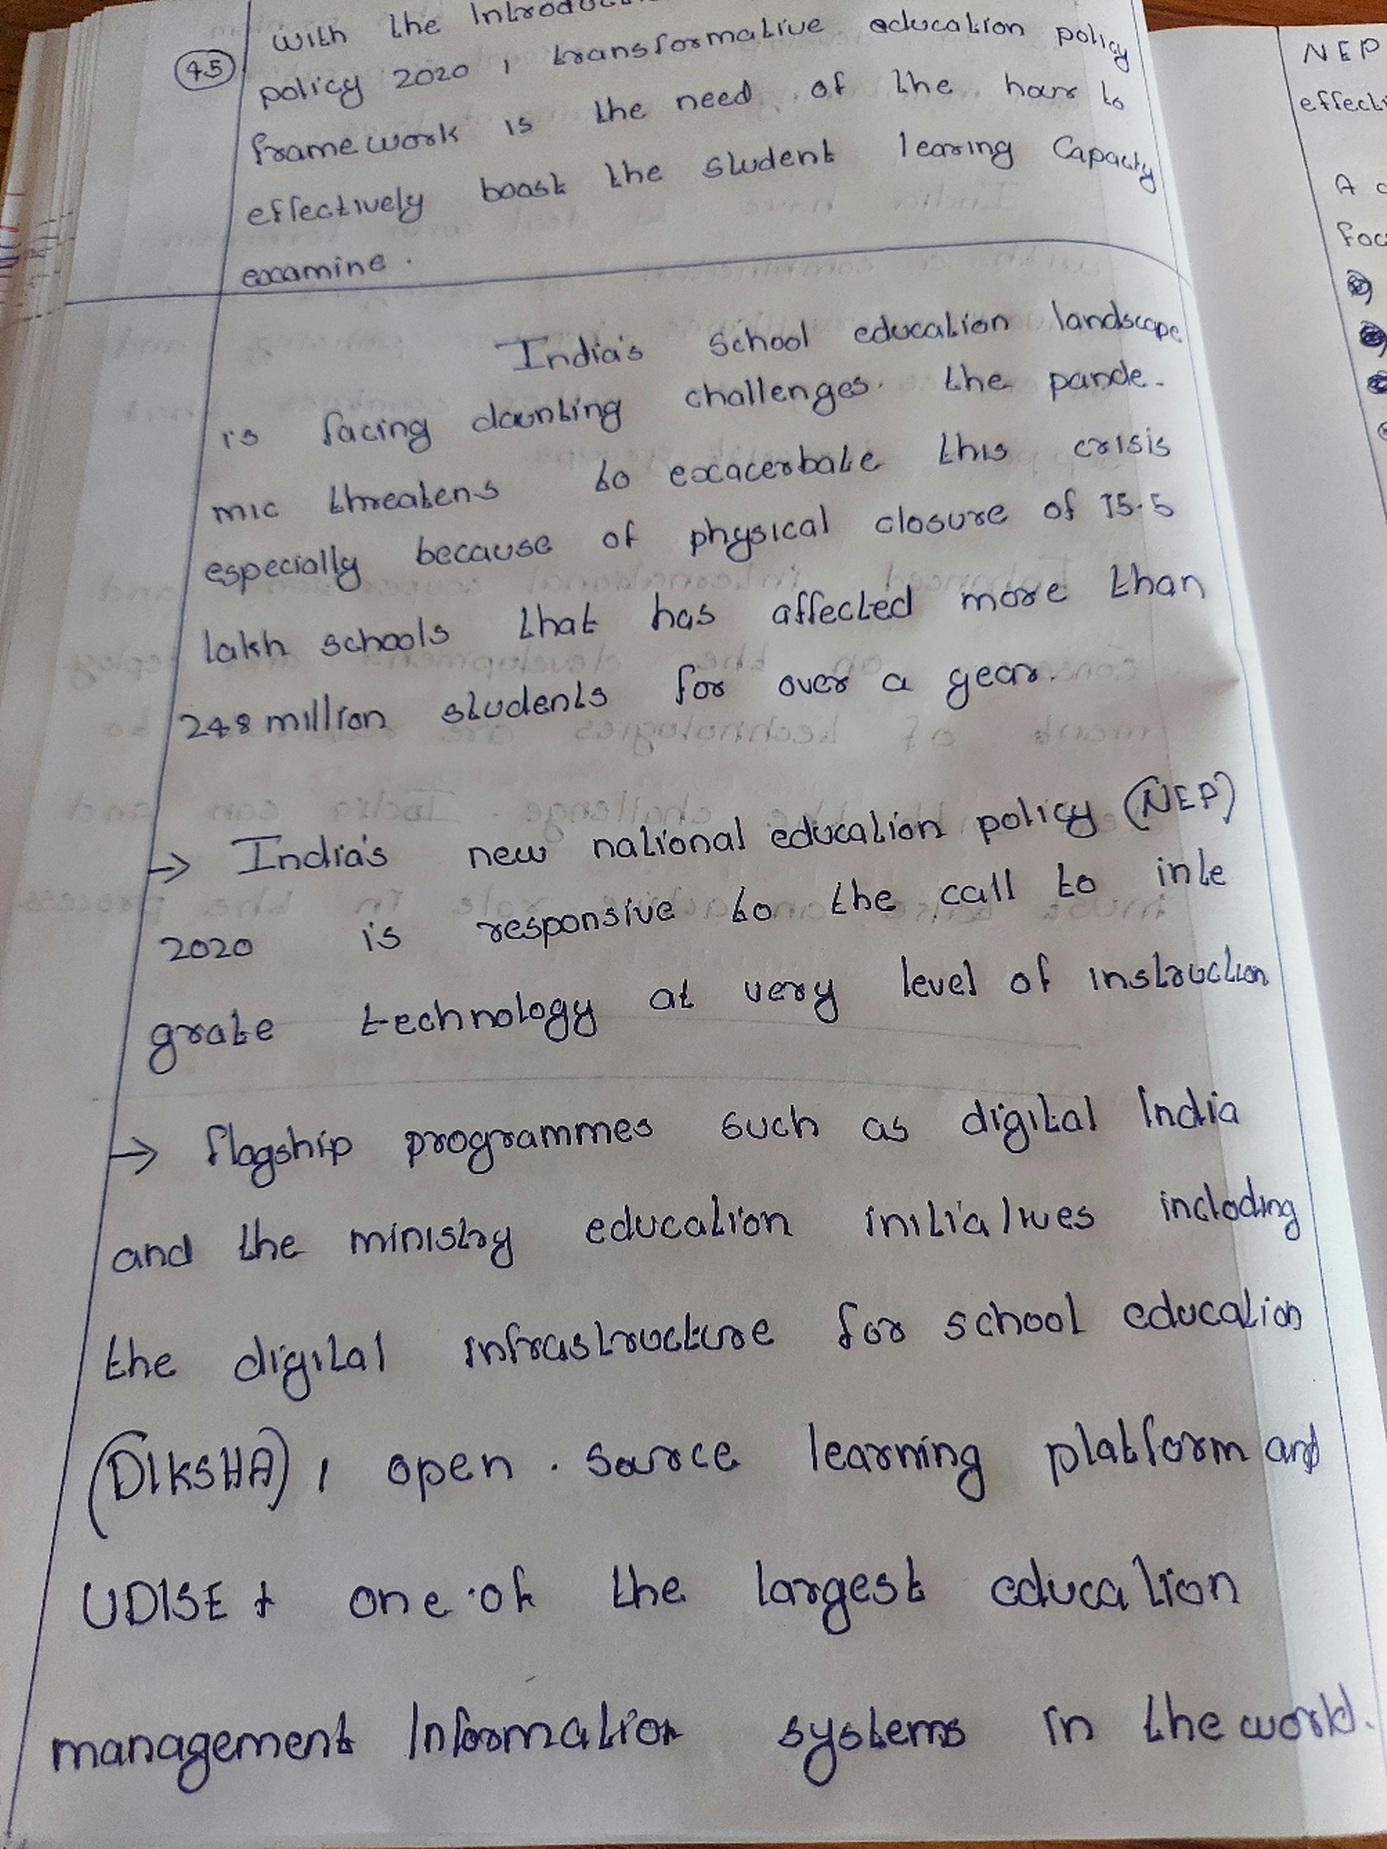 45
with the Introduc
policy 2020, transformative education policy
framework is the need of the hour to
effectively boost the student learing Capacity
examine.
India's school education landscape
is facing daunting challenges. the pande-
mic threatens to exacerbate this crisis
especially because of physical closure of 15.5
lakh schools that has affected more than
248 million students for over a year.
→ India's new national education policy (NEP)
2020 is responsive to the call to inte
grate technology at very level of instruction
→ flagship programmes such as digital India
and the ministry education initiatives including
the digital infrastructure for school education
(DIKSHA), open. source learning platform and
UDISE + one of the largest education
management Information systems in the world.
NEP
effecti
A c
foc